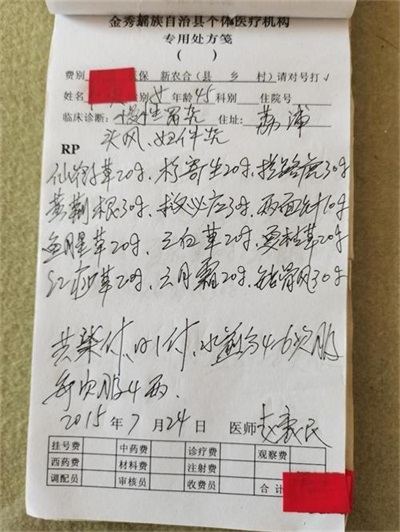 金秀瑶族自治县个体医疗机构
专用处方笺
( )
费别 医保 新农合(县 乡 村)请对号打✓
姓名 性别 女 年龄 45 科别 住院号
临床诊断: 慢性胃炎 住址: 荔浦
头风、妇件炎
RP
仙鹤草20g. 桑寄生20g.
黄荆根30g. 救必应3g. 两面针10g
鱼腥草20g. 三白草20g. 夏枯草20g
20g. 六月霜20g. 30g
共柒付, 日1付, 水煎分4-6次服
每次服4两.
2015年7月24日 医师
挂号费 中药费 诊疗费 观察费
西药费 材料费 注射费
调配员 审核员 收费员 合计